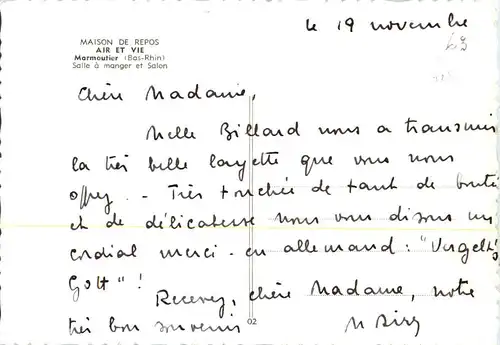 le 19 novembre
63
MAISON DE REPOS
AIR ET VIE
Marmoutier (Bas-Rhin)
Salle à manger et Salon
Chère Madame,
Melle Billard nous a transmis
la très belle layette que vous nous
offrez. - Très touchée de tant de bonté
et de délicatesse nous vous disons un
cordial merci - en allemand : "Vergelt's
Gott" !
Recevez, chère Madame, notre
très bon souvenir
02